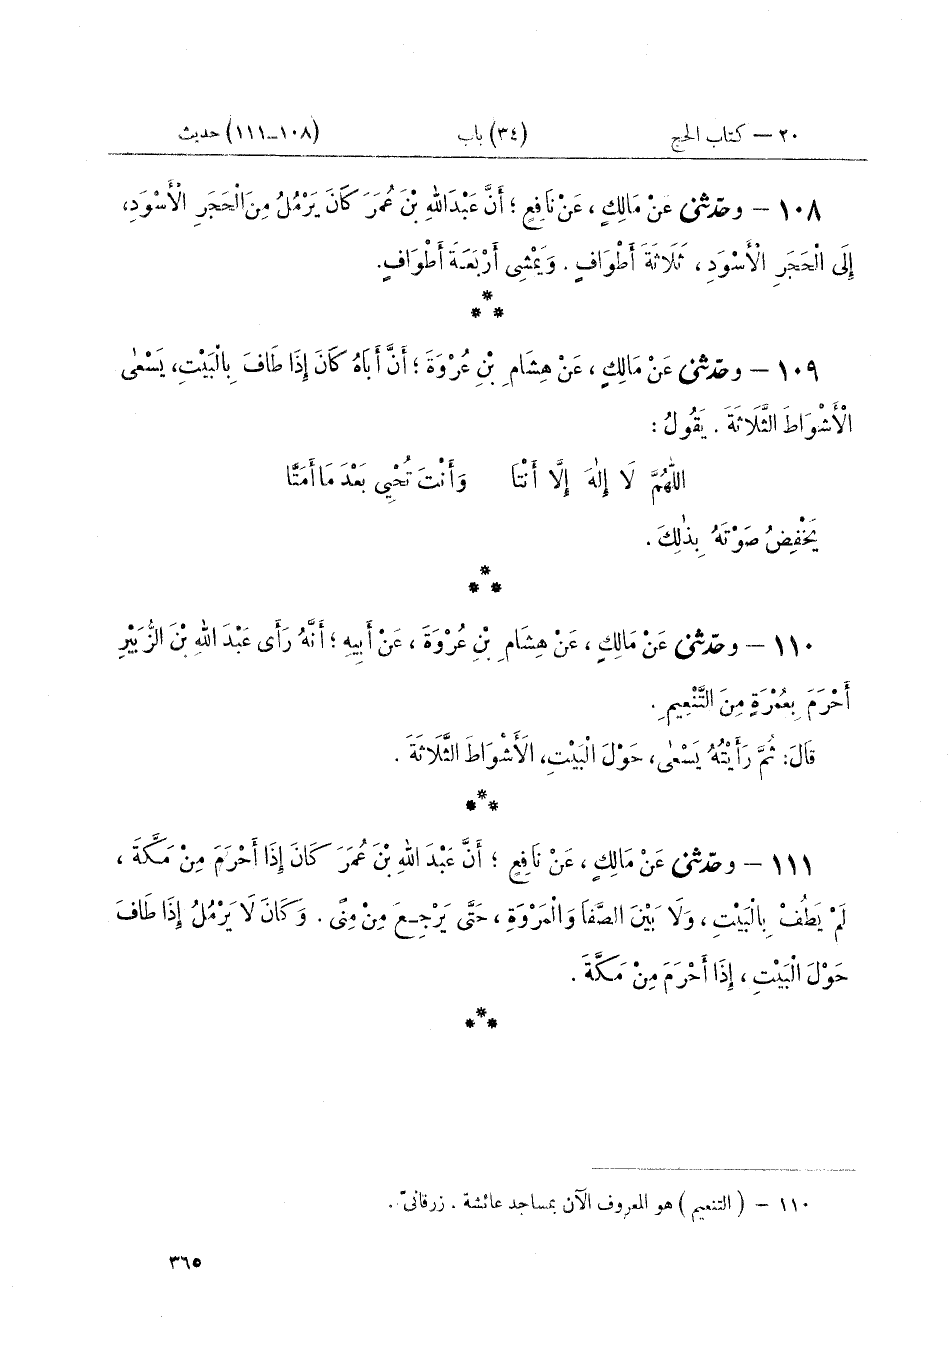 ٢٠ – كتاب الحج (٣٤) باب (١٠٨-١١١) حديث
١٠٨ – وحدّثنى عَنْ مَالِكٍ ، عَنْ نَافِعٍ ؛ أَنَّ عَبْدَ اللهِ بْنَ عُمَرَ كَانَ يَرْمُلُ مِنَ الْحَجَرِ الْأَسْوَدِ،
إِلَى الْحَجَرِ الْأَسْوَدِ ، ثَلَاثَةَ أَطْوَافٍ . وَيَمْشِى أَرْبَعَةَ أَطْوَافٍ.
*
* *
١٠٩ – وحدّثنى عَنْ مَالِكٍ ، عَنْ هِشَامِ بْنِ عُرْوَةَ ؛ أَنَّ أَبَاهُ كَانَ إِذَا طَافَ بِالْبَيْتِ، يَسْعَىٰ
الْأَشْوَاطَ الثَّلَاثَةَ . يَقُولُ :
اللَّهُمَّ لَا إِلٰهَ إِلَّا أَنْتَا وَأَنْتَ تُحْيِى بَعْدَ مَا أَمَتَّا
يَخْفِضُ صَوْتَهُ بِذٰلِكَ .
*
* *
١١٠ – وحدّثنى عَنْ مَالِكٍ ، عَنْ هِشَامِ بْنِ عُرْوَةَ ، عَنْ أَبِيهِ ؛ أَنَّهُ رَأَى عَبْدَ اللهِ بْنَ الزُّبَيْرِ
أَحْرَمَ بِعُمْرَةٍ مِنَ التَّنْعِيمِ .
قَالَ: ثُمَّ رَأَيْتُهُ يَسْعَىٰ، حَوْلَ الْبَيْتِ، الْأَشْوَاطَ الثَّلَاثَةَ .
*
* *
١١١ – وحدّثنى عَنْ مَالِكٍ ، عَنْ نَافِعٍ ؛ أَنَّ عَبْدَ اللهِ بْنَ عُمَرَ كَانَ إِذَا أَحْرَمَ مِنْ مَكَّةَ ،
لَمْ يَطُفْ بِالْبَيْتِ ، وَلَا بَيْنَ الصَّفَا وَالْمَرْوَةِ ، حَتَّى يَرْجِعَ مِنْ مِنًى . وَكَانَ لَا يَرْمُلُ إِذَا طَافَ
حَوْلَ الْبَيْتِ ، إِذَا أَحْرَمَ مِنْ مَكَّةَ .
*
* *
١١٠ – ( التنعيم ) هو المعروف الآن بمساجد عائشة . زرقانىّ .
٣٦٥